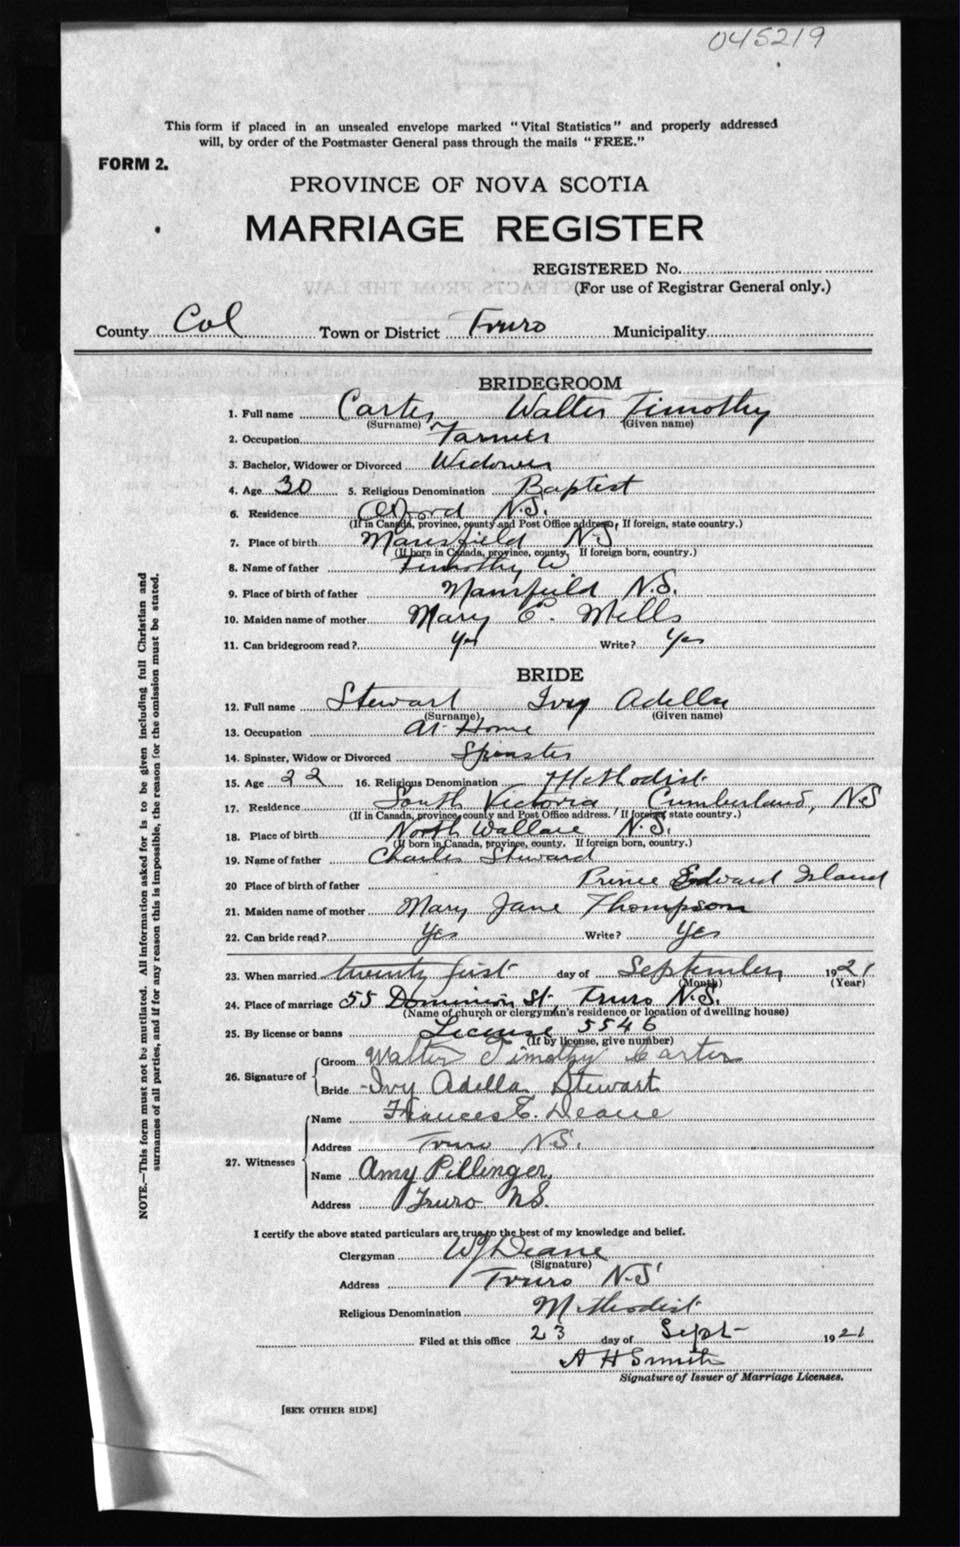 045219
This form if placed in an unsealed envelope marked "Vital Statistics" and properly addressed
will, by order of the Postmaster General pass through the mails "FREE."
FORM 2.
PROVINCE OF NOVA SCOTIA
MARRIAGE REGISTER
REGISTERED No.
(For use of Registrar General only.)
County Col Town or District Truro Municipality
BRIDEGROOM
1. Full name Carter Walter Timothy
(Surname) (Given name)
2. Occupation Farmer
3. Bachelor, Widower or Divorced Widower
4. Age 30 5. Religious Denomination Baptist
6. Residence Oxford N.S.
(If in Canada, province, county and Post Office address, If foreign, state country.)
7. Place of birth Mansfield N.S
(If born in Canada, province, county. If foreign born, country.)
8. Name of father Timothy W
9. Place of birth of father Mansfield N.S.
10. Maiden name of mother Mary E. Mills
11. Can bridegroom read? Yes Write? Yes
BRIDE
12. Full name Stewart Ivy Adella
(Surname) (Given name)
13. Occupation At Home
14. Spinster, Widow or Divorced Spinster
15. Age 22 16. Religious Denomination Methodist
17. Residence South Victoria, Cumberland, NS
(If in Canada, province, county and Post Office address. If foreign state country.)
18. Place of birth North Wallace N.S.
(If born in Canada, province, county. If foreign born, country.)
19. Name of father Charles Steward
20 Place of birth of father Prince Edward Island
21. Maiden name of mother Mary Jane Thompson
22. Can bride read? Yes Write? Yes
23. When married twenty first day of September 1921
(Month) (Year)
24. Place of marriage 55 Dominion St, Truro N.S.
(Name of church or clergyman's residence or location of dwelling house)
25. By license or banns License 5546
(If by license, give number)
26. Signature of Groom Walter Timothy Carter
Bride Ivy Adella Stewart
27. Witnesses
Name Frances E. Deane
Address Truro N.S.
Name Amy Pillinger,
Address Truro N.S.
I certify the above stated particulars are true to the best of my knowledge and belief.
Clergyman WJ Deane
(Signature)
Address Truro N.S
Religious Denomination Methodist
Filed at this office 23 day of Sept 1921
A H Smith
Signature of Issuer of Marriage Licenses.
[SEE OTHER SIDE]
NOTE.—This form must not be mutilated. All information asked for is to be given including full Christian and
surnames of all parties, and if for any reason this is impossible, the reason for the omission must be stated.